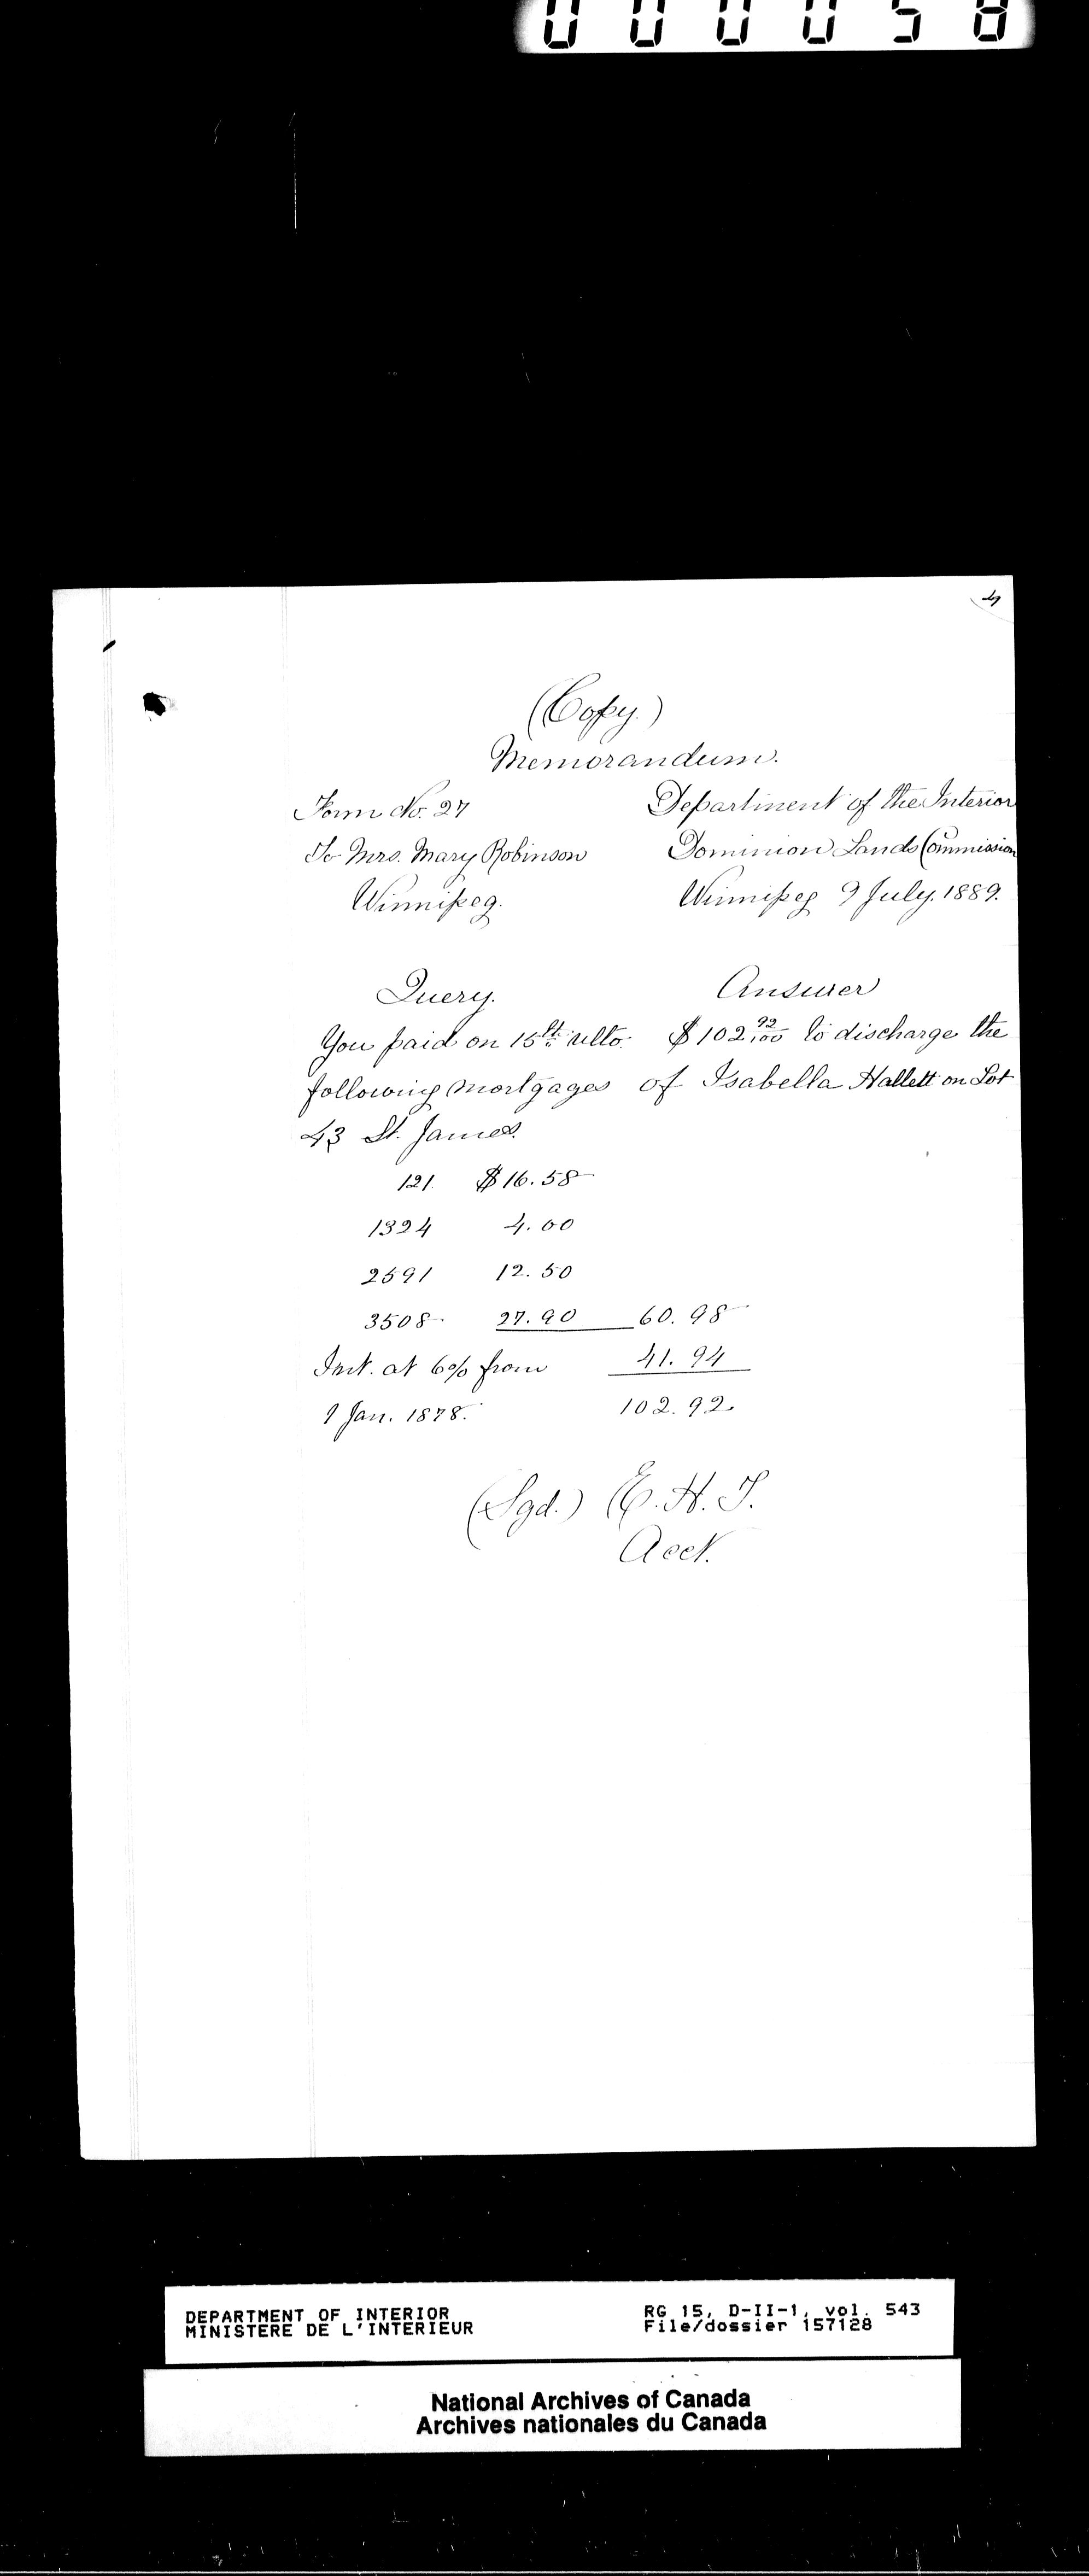 000058
4
(Copy.)
Memorandum.
Form No. 27 Department of the Interior
To Mrs. Mary Robinson Dominion Lands Commission
Winnipeg. Winnipeg 9 July. 1889.
Query. Answer
You paid on 15th ulto. $102.92/100 to discharge the
following mortgages of Isabella Hallett on Lot
43 St. James.
121. $16.58
1324 4.00
2591 12.50
3508 27.90 60.98
Int. at 6% from 41.94
1 Jan. 1878. 102.92
(Sgd.) E. H. T.
Acct.
DEPARTMENT OF INTERIOR RG 15, D-II-1, vol. 543
MINISTERE DE L'INTERIEUR File/dossier 157128
National Archives of Canada
Archives nationales du Canada